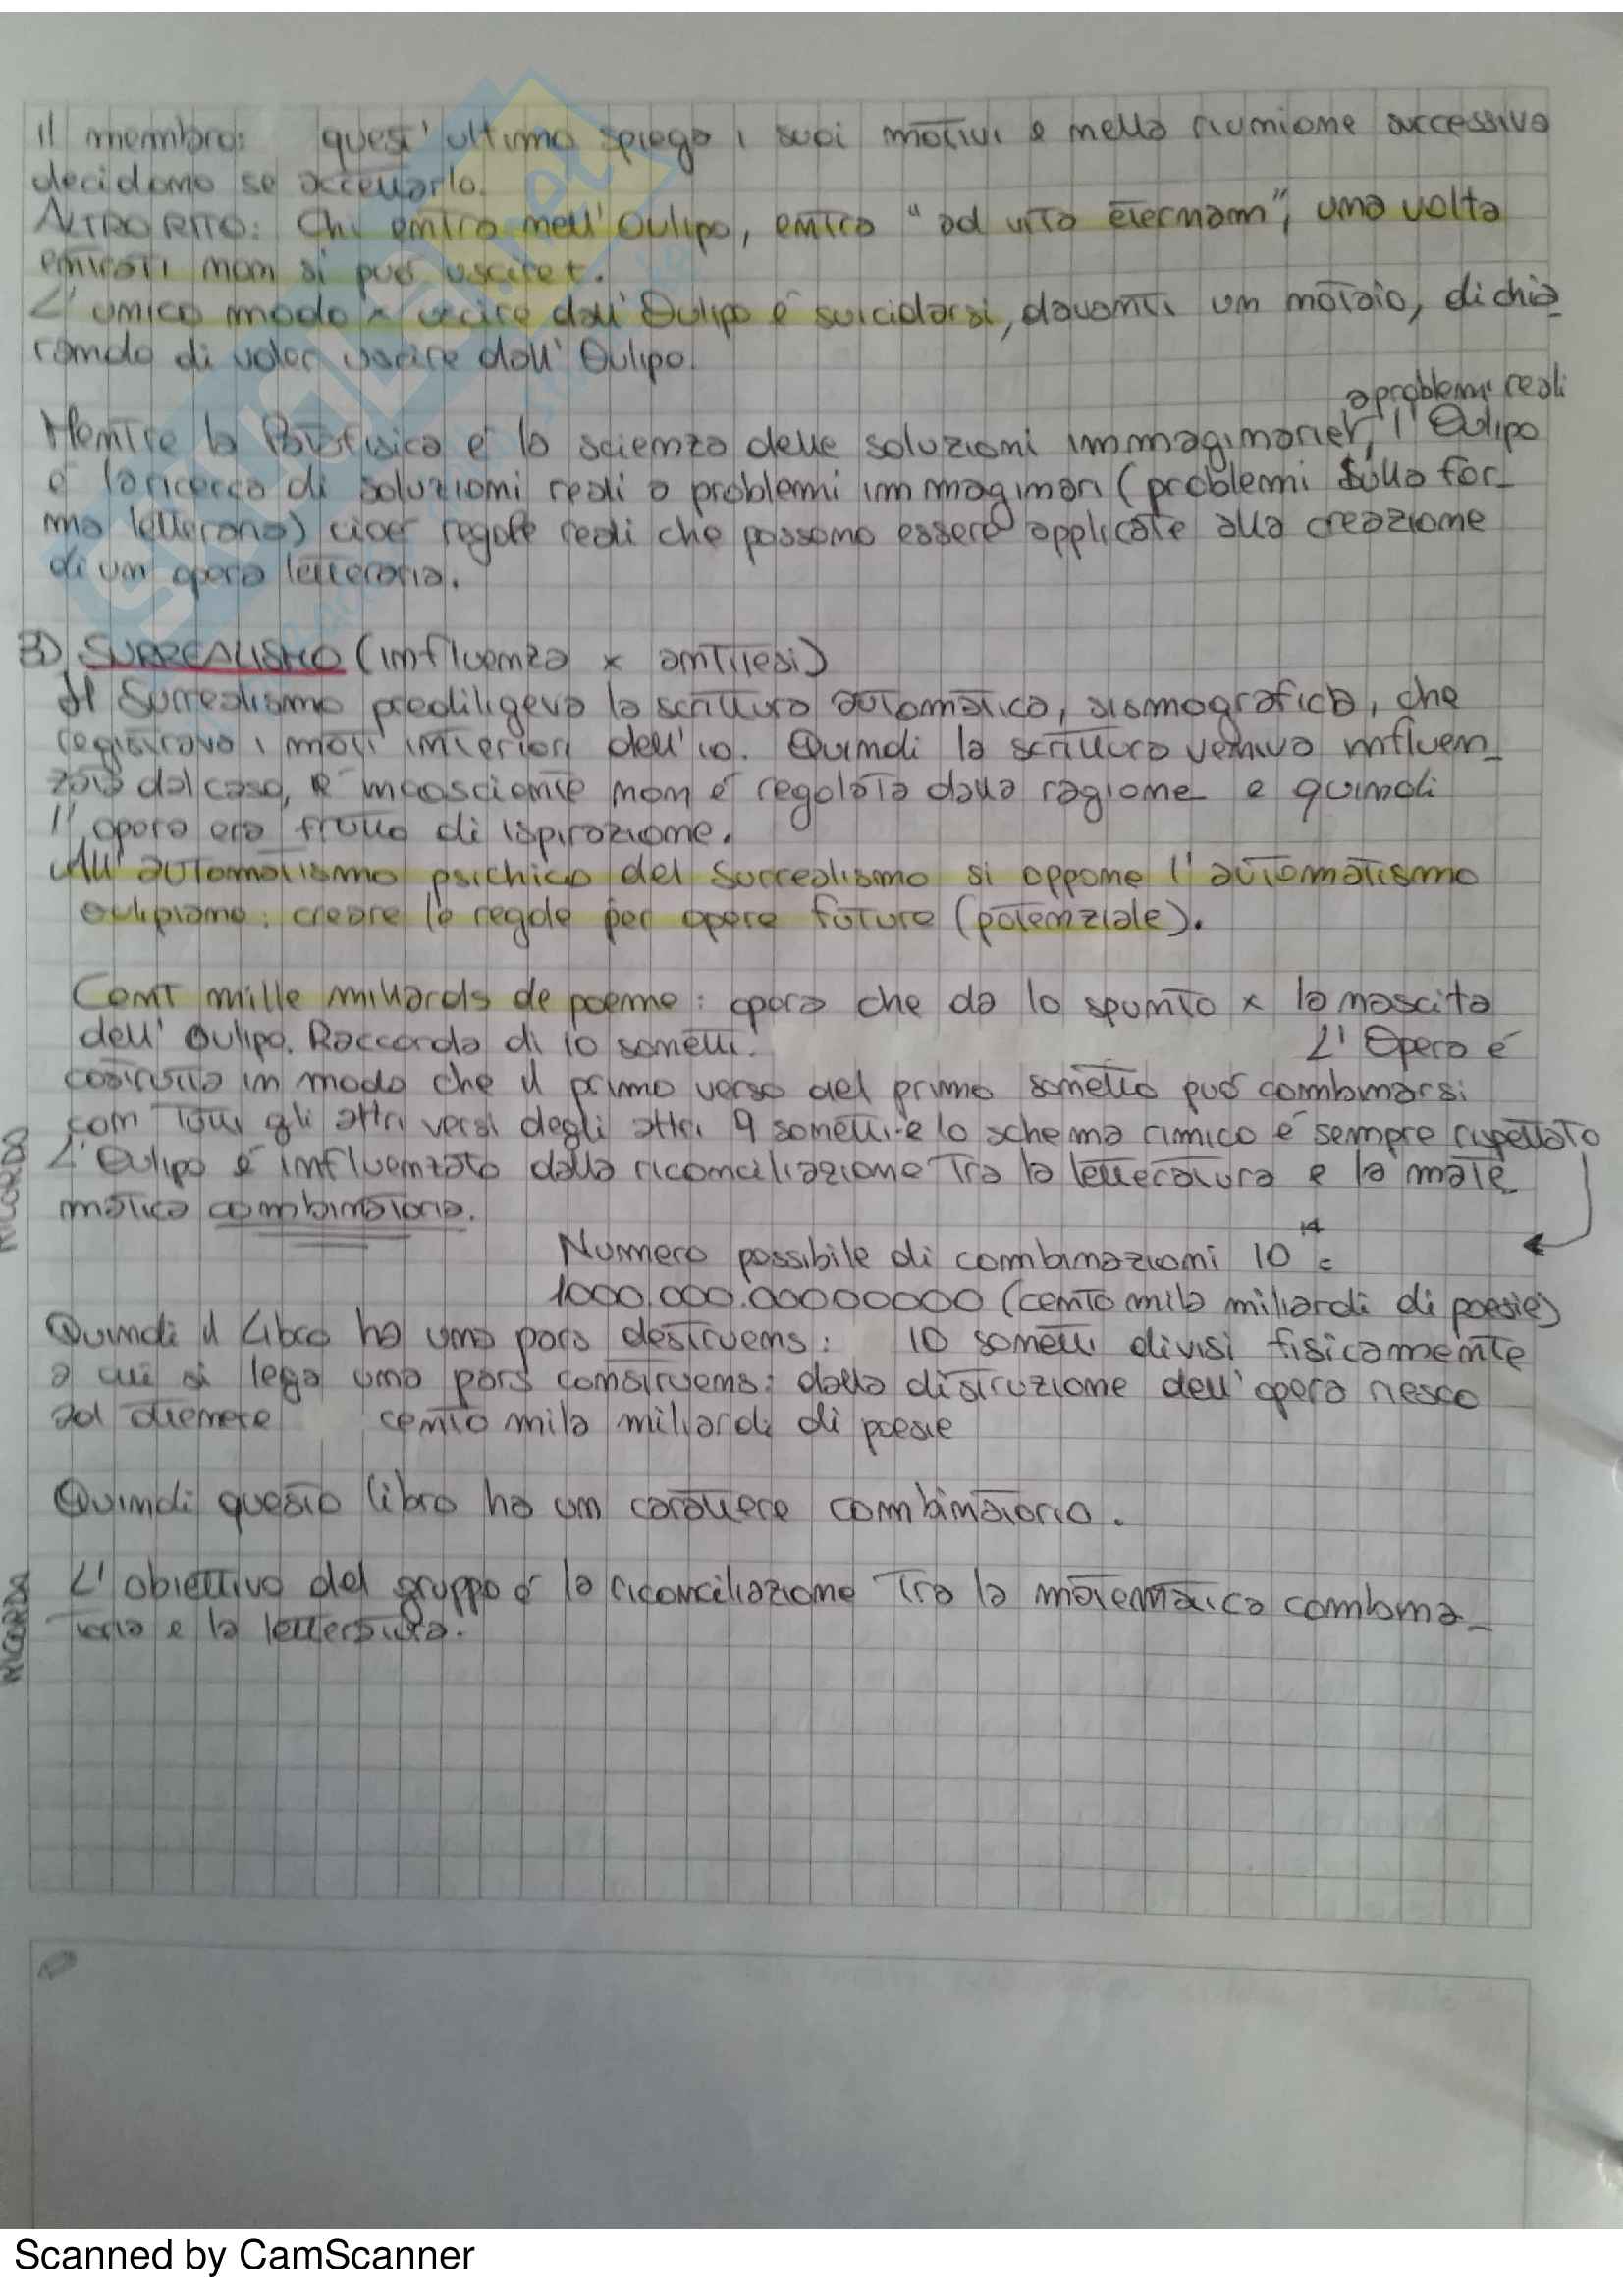 Il membro: quest'ultimo spiega i suoi motivi e nella riunione successiva
decidono se accettarlo.
ALTRO RITO: Chi entra nell'Oulipo, entra "ad vita eternam", una volta
entrati non si può uscire.
L'unico modo x uscire dall'Oulipo è suicidarsi, davanti un notaio, dichia_
rando di voler uscire dall'Oulipo.
a problemi reali
Mentre la Patafisica è la scienza delle soluzioni immaginarie, l'Oulipo
è la ricerca di soluzioni reali a problemi immaginari (problemi sulla for_
ma letteraria) cioè regole reali che possono essere applicate alla creazione
di un opera letteraria.
B) SURREALISMO (influenza x antitesi)
Il Surrealismo prediligeva la scrittura automatica, sismografica, che
registrava i moti interiori dell'io. Quindi la scrittura veniva influen_
zata dal caso, è incosciente non è regolata dalla ragione e quindi
l'opera era frutto di ispirazione.
All'automatismo psichico del Surrealismo si oppone l'automatismo
oulipiano: creare le regole per opere future (potenziale).
Cent mille milliards de poeme: opera che da lo spunto x la nascita
dell'Oulipo. Raccolta di 10 sonetti. L'Opera è
costruita in modo che il primo verso del primo sonetto può combinarsi
con tutti gli altri versi degli altri 9 sonetti e lo schema rimico è sempre rispettato
RICORDA
L'Oulipo è influenzato dalla riconciliazione tra la letteratura e la mate_
matica combinatoria.
Numero possibile di combinazioni 10 14 =
1000.000.00000000 (cento mila miliardi di poesie)
Quindi il Libro ha una pars destruens: 10 sonetti divisi fisicamente
a cui si lega una pars construens: dalla distruzione dell'opera riesco
ad ottenere cento mila miliardi di poesie
Quindi questo libro ha un carattere combinatorio.
RICORDA
L'obiettivo del gruppo è la riconciliazione tra la matematica combina_
toria e la letteratura.
Scanned by CamScanner